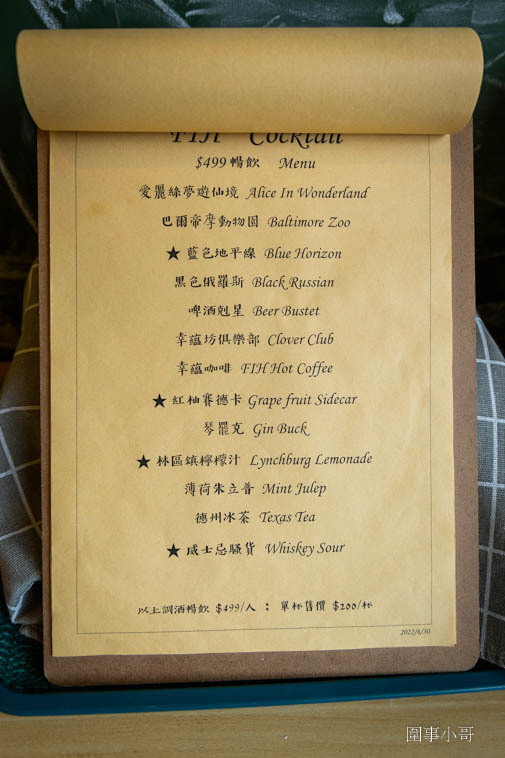 FIH Cocktail
$499暢飲 Menu
愛麗絲夢遊仙境 Alice In Wonderland
巴爾帝摩動物園 Baltimore Zoo
★ 藍色地平線 Blue Horizon
黑色俄羅斯 Black Russian
啤酒剋星 Beer Bustet
幸蘊坊俱樂部 Clover Club
幸蘊咖啡 FIH Hot Coffee
★ 紅柚賽德卡 Grape fruit Sidecar
琴罷克 Gin Buck
★ 林區鎮檸檬汁 Lynchburg Lemonade
薄荷朱立普 Mint Julep
德州冰茶 Texas Tea
★ 威士忌騷貨 Whiskey Sour
以上調酒暢飲 $499/人 : 單杯售價 $200/杯
2022/6/30
圍事小哥